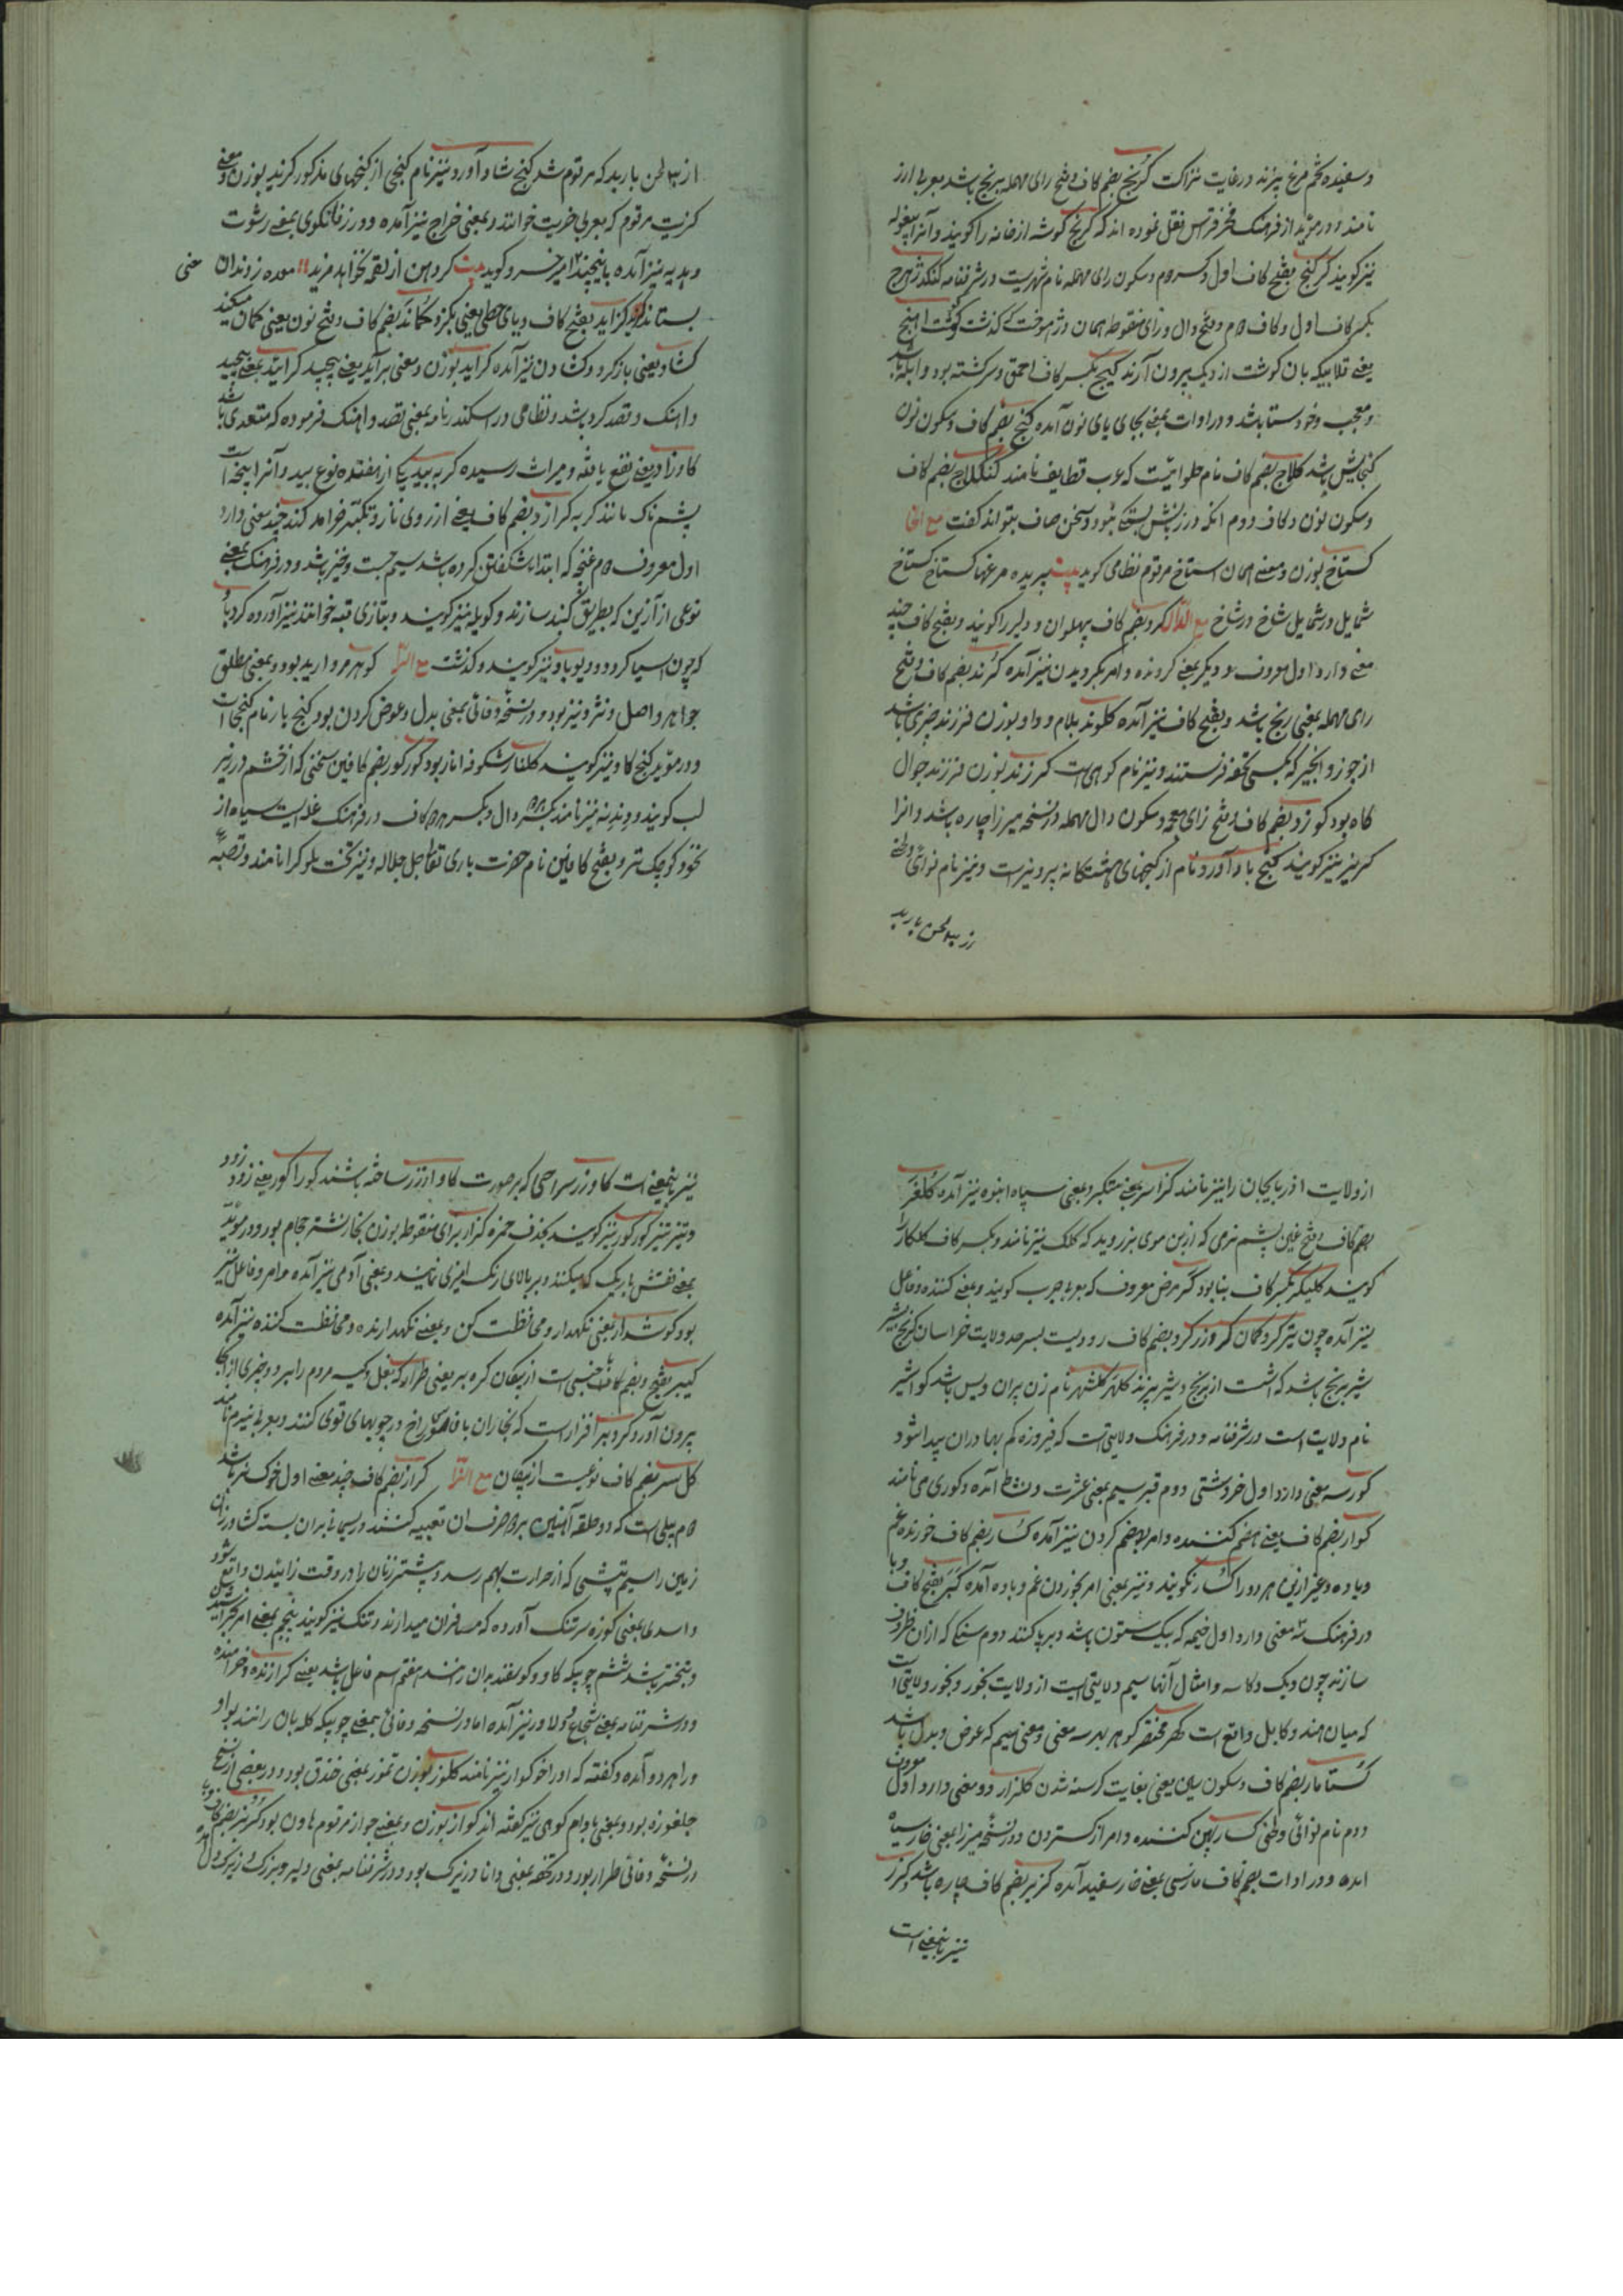 وسفیده تخم مرغ پزند در غایت نزاکت گرنج بضم کاف و فتح رای مهمله برنج باشد بعربی ارز
نامند و در مؤید از فرهنگ فخر قواس نقل نموده اند که گرنج گوشه از خانه را گویند و آنرا پیغوله
نیز گویند گرگنج بفتح کاف اول و دوم و سکون رای مهمله نام شهریست در شرفنامه گنگدژهرج
بکسر کاف اول و کاف دوم و فتح دال و زای منقوطه همان دژهوخت گذشت گوشت اهنج
یعنی قلابیکه بان گوشت از دیک بیرون آرند گیج بکسر کاف احمق و سرگشته بود و ابله باشد
و معجب و خودستا باشد و در ادات بمعنی بجای یای نون آمده گنج بضم کاف و سکون نون
گنجایش باشد گلاج بضم کاف نام حلوائیست که عرب قطایف نامند گنگلاج بضم کاف
و سکون نون و کاف دوم انکه در زبانش بستگی بود و سخن صاف نتواند گفت مع الخا
گستاخ بوزن و معنی همان استاخ مرقوم نظامی گوید بیت پریده مرغها گستاخ گستاخ
شمایل در شمایل شاخ در شاخ مع الدال گرد بضم کاف پهلوان و دلیر را گویند و بفتح کاف چند
معنی دارد اول معروف و دیگر بمعنی گردنده و امر بگردیدن نیز آمده گرند بضم کاف و فتح
رای مهمله بمعنی رنج باشد و بفتح کاف نیز آمده گلوند بلام و واو بوزن فرزند چیزی باشد
از جوز و انجیر که بکسی تحفه فرستند و نیز نام کوهی است گرزند بوزن فرزند جوال
کاه بود گوزد بضم کاف و فتح زای معجمه و سکون دال مهمله در نسخه میرزا چاره باشد و انرا
گریز نیز گویند گنج باد آورد نام از گنجهای هشتگانه پرویزست و نیز نام نوائی ولحنی
از سی لحن باربد
از سی لحن باربد که مرقوم شد گنج شاد آورد نیز نام گنجی از گنجهای مذکور گزید بوزن و معنی
گزیت مرقوم که بعربی جزیت خوانند و بمعنی خراج نیز آمده و در زفانگویا بمعنی رشوت
و هدیه نیز آمده امیر خسرو گوید بیت گر دهن از لقمه نخواهد مزید معده ز دندان
بستاند گزید گزاید بفتح کاف و یای حطی یعنی بگزد گماند بضم کاف و فتح نون یعنی گمان میکند
گشاد یعنی باز کرد و گشادن نیز آمده گراید بوزن و معنی برآید یعنی پیچید گرائید بمعنی پیچید
و اهنگ و قصد کرد باشد و نظامی در اسکندرنامه بمعنی قصد و اهنگ فرموده که متعدی باشد
گاوزاد یعنی نفع یافته و میراث رسیده گربه بید یکی از هفتده نوع بید و آنرا پنجه است
پشم ناک مانند گربه گرازد بضم کاف یعنی از روی ناز و تکبر خرامد گند چند معنی دارد
اول معروف دوم غنچه که ابتدا بشکفتن کرده باشد سیم جست و خیز باشد و در فرهنگ بمعنی
نوعی از آزین که بطریق گنبد سازند و کوپله نیز گویند و بتازی قبه خوانند نیز آورده گردباد
که چون اسیا گردد و دیوباد نیز گویند و گذشت مع الرا گوهر مروارید بود و بمعنی مطلق
جواهر و اصل و نژاد نیز بود و در نسخه وفائی بمعنی بدل و عوض کردن بود گنج بار نام گنجی است
و در مؤید گنج گاو نیز گویند گلنار شکوفه انار بود گورگور بضم کافین سخنی که از خشم در زیر
لب گویند و دندنه نیز نامند بکسر دو دال و بکسر هر دو کاف در فرهنگ غله ایست سیاه از
نخود کوچک تر و بفتح کافین نام حضرت باری تعالی جل جلاله و نیز تخت ملوک را نامند و قصبه
از ولایت اذربایجان را نیز نامند گنرا سر بمعنی متکبر و بمعنی سپاه انبوه نیز آمده گلغر
بضم کاف و فتح غین پشم نرمی که از بن موی بز روید که کلک نیز نامند و بکسر کاف گلکار را
گویند گلیگر بکسر کاف بنا بود گر مرض معروف که بعربی جرب گویند و بمعنی کننده و فاعل
نیز آمده چون تیر گر و کمان گر و زرگر و بضم کاف رودیست بسرحد ولایت خراسان گرنج بشیر
شیر برنج باشد که اشست از برنج و شیر پزند گلهر گلشهر نام زن پیران ویس باشد گواشیر
نام ولایت است در شرفنامه و در فرهنگ ولایتی است که فیروزه کم بها دران پیدا شود
گور سه معنی دارد اول خر دشتی دوم قبر سیم بمعنی عشرت و نشاط آمده و گوری می نامند
گوار بضم کاف یعنی هضم کننده و امر بهضم کردن نیز آمده گسار بضم کاف خورنده غم
و باده و غیر ازین هر دو را گسار نگویند و نیز بمعنی امر بخوردن غم و باده آمده گبر بفتح کاف و با
در فرهنگ سه معنی دارد اول خیمه که بیک ستون باشد و برپا کنند دوم سنگی که ازان ظروف
سازند چون دیک و کاسه و امثال آنها سیم ولایتی است از ولایت بجور و بجور ولایتی است
که میان هند و کابل واقع است گهر مختصر گوهر بهر سه معنی و معنی سیم که عوض و بدل باشد
گستامار بضم کاف و سکون سین یعنی بغایت گرسنه شدن گلزار دو معنی دارد اول معروف
دوم نام نوائی ولحنی گسار پهن کننده و امر از گستردن و در نسخه میرزا بمعنی خار سیاه
امده و در ادات بضم کاف فارسی بمعنی خار سفید آمده گزیر بضم کاف چاره باشد و گزر
نیز باینمعنی است
نیز باینمعنی است گاو زر سراحی که بر صورت گاو از زر ساخته باشند گور اگور یعنی زود زود
و تیز تیز گور گور نیز گویند بحذف همزه گزار برای منقوطه بوزن بخار نشتر حجام بود و در مؤید
بمعنی نقش باریک که میکنند و بر بالای رنگ امیزی نمایند و بمعنی آدمی نیز آمده و امر و فاعل نیز
بود گوشدار یعنی نگهدار و محافظت کن و بمعنی نگهدارنده و محافظت کننده نیز آمده
گیبر بفتح و بضم کاف جنسی است از پیکان گره بر یعنی طرار که بغل و کیسه مردم را ببرد و چیزی از انجا
بیرون آورد گردبر افزار است که نجاران با سوراخ در چوبهای قوی کنند و بعربی بیرم نامند
گل سر بضم کاف نوعیست از پیکان مع الزا گراز بضم کاف چند معنی اول خوک نر باشد
دوم بیلی است که دو حلقه آهنین بر دو طرف ان تعبیه کنند و ریسمانی بران بسته کشاورزان
زمین را سیم تپشی که از حرارت بهم رسد و بیشتر زنان را در وقت زائیدن واقع شود
و اسدی بمعنی کوزه سر تنگ آورده که مسافران میدارند و تنک نیز گویند پنجم بمعنی امر بخرامیدن
و تبختر باشد ششم چوبیکه گاو و گوسفند بران رانند هفتم اسم فاعل باشد یعنی گرازنده و خرامنده
و در شرفنامه بمعنی شجاع و دلاور نیز آمده اما در نسخه وفائی بمعنی چوبیکه گله بان رانند بواو
و راء هر دو آمده و گفته که او را خوگواز نیز نامند گلوز بوزن تموز بمعنی فندق بود و در بعضی از نسخ
جلغوزه بود و بمعنی بادام کوهی نیز گفته اند گواز بوزن و بمعنی جواز مرقوم هاون بود گربز بضم کاف و با
در نسخه وفائی طرار بود و در تحفه بمعنی دانا و زیرک بود و در شرفنامه بمعنی دلیر و بزرگ و زیرک و دال